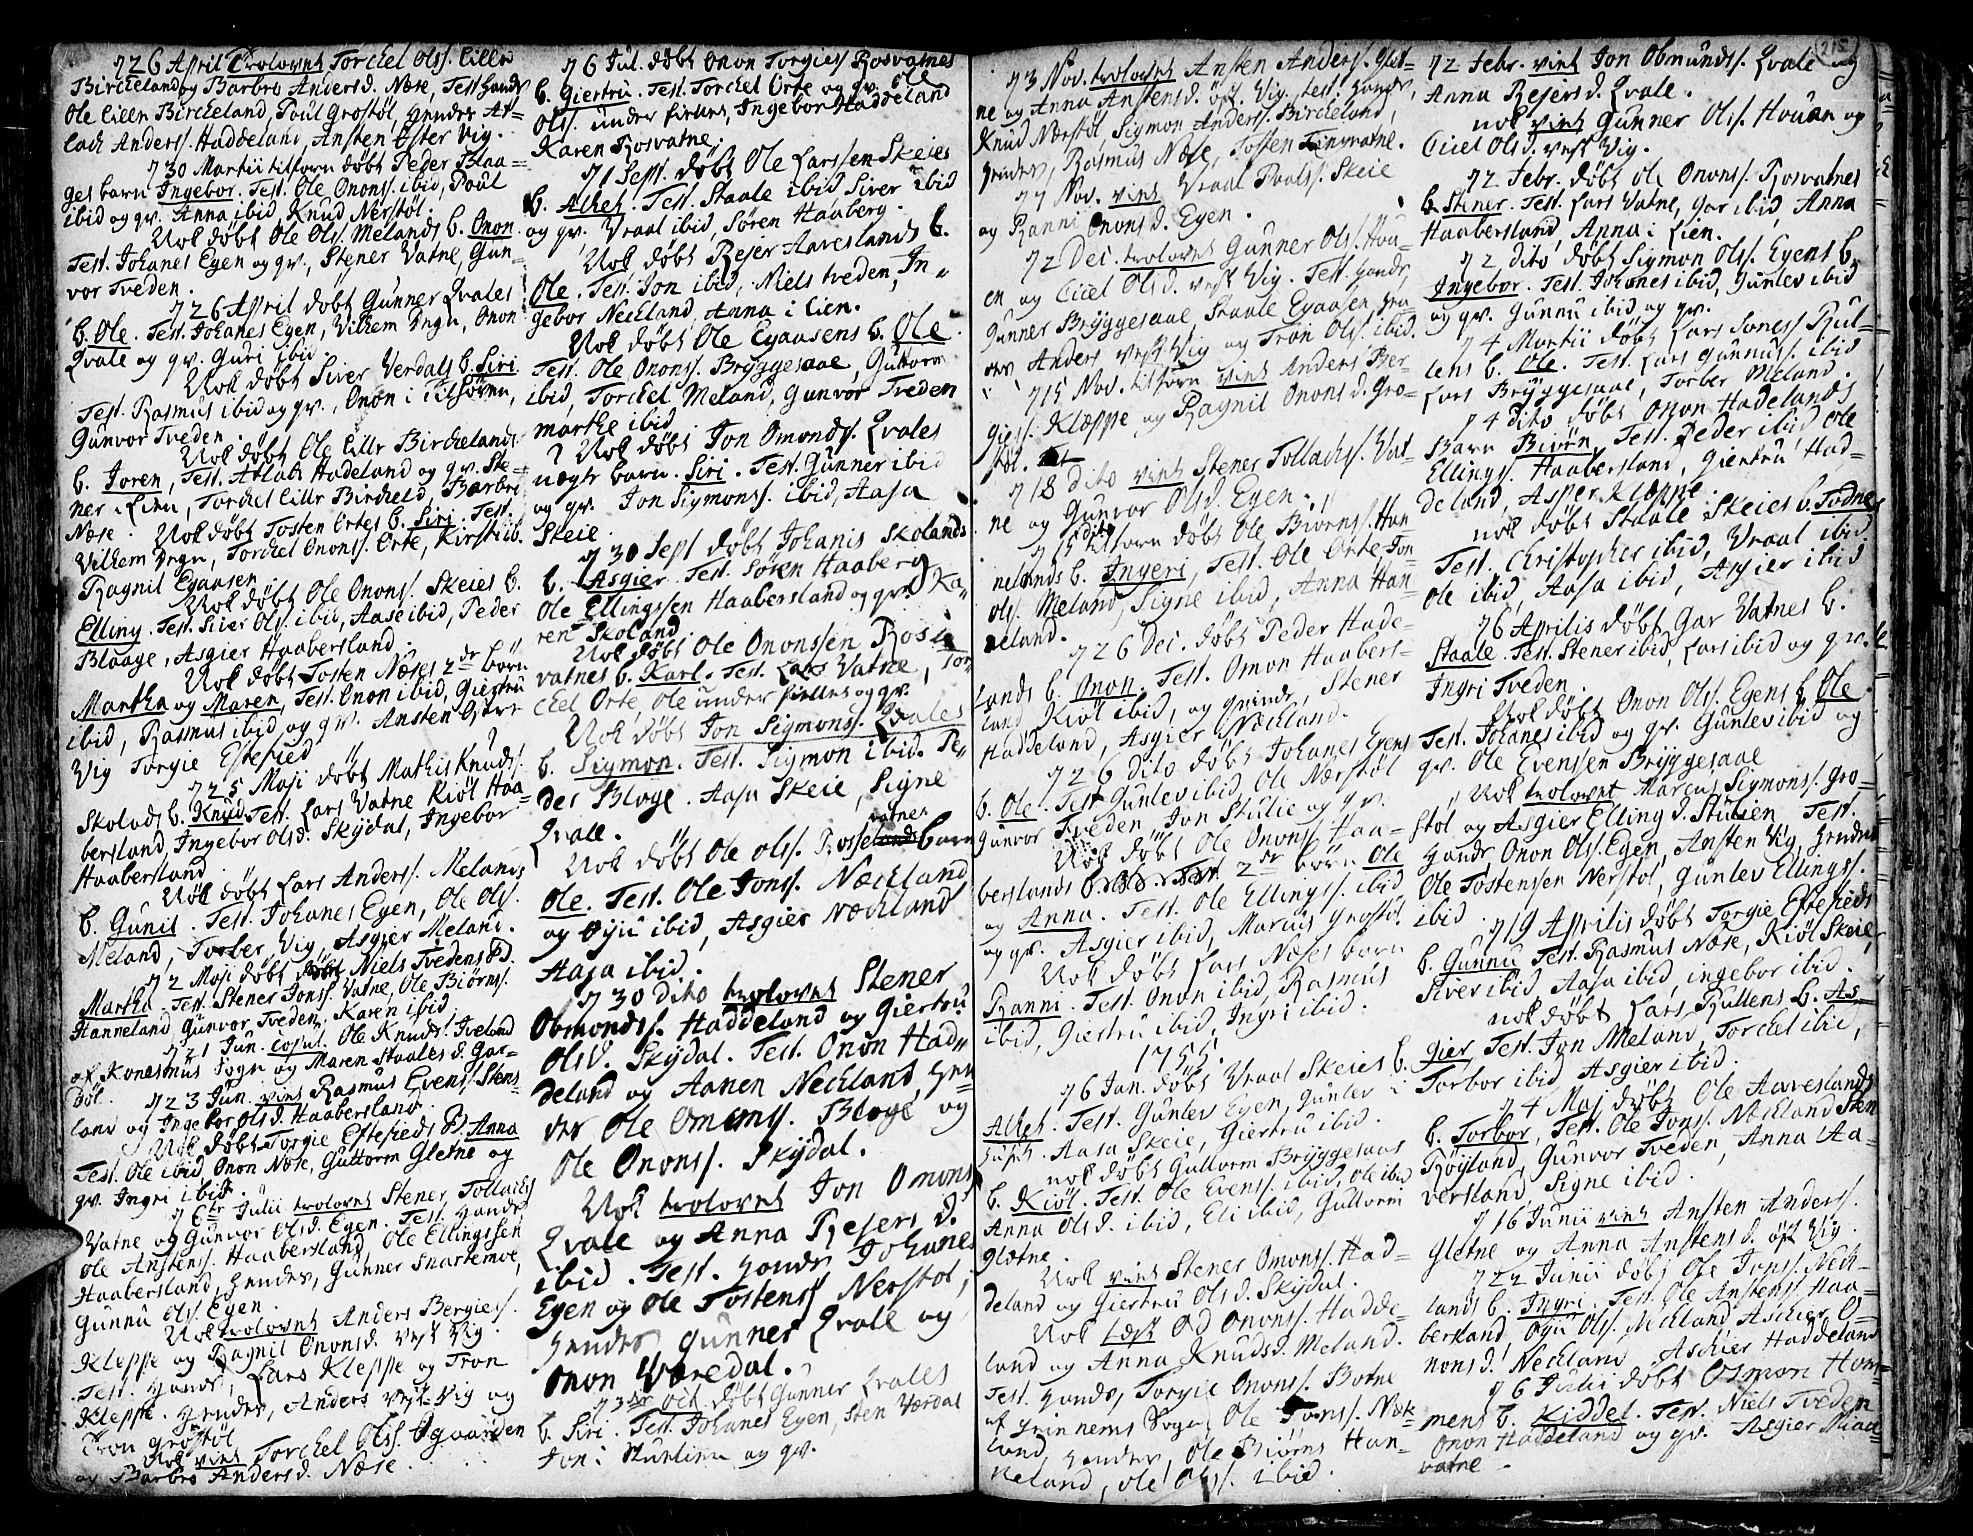 726 April Trolovet Torchel Olss. Lille
Bircheland og Barbro Andersd. Næse, Test. Hands
Ole Lille Bircheland, Poul Grostøl, Hendes At-
lach Anderss. Haddeland, Ansten Øster Vig.
730 Martii tilforn døbt Peder Blaa-
ges barn Ingebor. Test. Ole Onons. ibid, Poul
ibid og qv. Anna ibid, Knud Nerstøl.
Nok døbt Ole Ols. Melands b. Onon.
Test. Johanes Egen og qv., Stener Vatne, Gun-
vor Tveden.
726 April døbt Gunner Qvales
b. Ole. Test. Johanes Egen, Vilhem, Onon
Qvale og qv. Guri ibid.
Nok døbt Siver Verdals b. Siri.
Test. Rasmus ibid og qv., Onon i
Gunvor Tveden.
Nok døbt Ole Lille Birchelands
b. Joren, Test. Atlak Hadeland og qv. Ste-
ner i Lien, Torchel Lille Bircheld, Barbro
Næse. Nok døbt Tosten Ortes b. Siri. Test.
Vilhem, Torchel Onons. Orte, Kirsti ib.
Ragnil Egaasen
Nok døbt Ole Onons. Skeies b.
Elling. Test. Siver Ols. ibid, Aase ibid, Peder
Blaage, Asgier Haabersland.
Nok døbt Tosten Næses 2de børn
Martha og Maren, Test. Onon ibid, Giertru
ibid, Rasmus ibid og qv. Ansten Øster
Vig Torgie Eftested
725 Maji døbt Mathis Knuds.
Skolads b. Knud Test. Lars Vatne Kiøl Haa-
bersland, Ingebor Olsd. Skÿdal, Ingebor
Haabersland.
Nok døbt Lars Anderss. Melands
b. Gunil. Test. Johanes Egen, Ole Ols.
Meland, Torber Vig, Asgier Meland.
72 Maji døbt Niels Tvedens b.
Martha. Test. Stener Jonss. Vatne, Ole Biørns.
Hanneland Gunvor Tveden, Karen ibid
721 Jun. copul. Ole Knuds. Iveland
af Konesmus Sogn og Maren Staales d. Gar-
døl. 723 Jun. viet Rasmus Evenss. Stens-
land og Ingebor Olsd. Haabersland.
Nok døbt Torgie Eftesteds b. Anna
Test. Ole ibid, Onon Næse, Guttorm Gletne og
qv. Ingri ibid.
76te Julii trolovet Stener Tollachs
Vatne og Gunvor Olsd. Egen. Test. Hands
Ole Anstens. Haabersland, Ole Ellingssen
Haabersland, Hendes, Gunner Snartemoe,
Gunnu Olss. Egen.
Nok trolovet Anders Bergiess.
Kleppe og Ragnil Onons d. Vest Vig.
Test. Hands, Lars Kleppe og Tron
Kleppe. Hendes, Anders Vest Vig og
Tron Grostøl
Nok viet Torchel Olss. Øgaarden
og Barbro Andersd. Næse.
76 Jul. døbt Onon Torgiess Rosvatnes
b. Giertru. Test. Torchel Orte og qv. Ole
Olss. under fieltet, Ingebor Haddeland
Karen Rosvatne.
71 Sept. døbt Ole Larssen Skeies
b. Alhet. Test. Staale ibid Siver ibid
og qv, Vraal ibid, Søren Haaberg.
Nok døbt Rejer Aareslands b.
Ole. Test. Jon ibid, Niels Tveden, In-
gebor Neckland, Anna i Lien.
Nok døbt Ole Egaasens b. Ole.
Test. Ole Onons. Brÿggesaae, Guttorm
ibid, Torchel Meland, Gunvor Tveden
marthe ibid
Nok døbt Jon Omonds. Qvales
uægte barn. Siri. Test. Gunner ibid
og qv. Jon Sigmonss. ibid, Aasa
Skeie.
730 Sept døbt Johanis Skolands
b. Asgier. Test. Søren Haaberg
Ole Ellingssen Haabersland og qv. Ka-
ren Skoland
Nok døbt Ole Ononssen Ros
vatnes b. Karl. Test. Lars Vatne, Tor
chel Orte, Ole under fieltet og qv.
Nok døbt Jon Sigmons. Qvales
b. Sigmon. Test. Sigmon ibid. Pe-
der Bloge. Aasa Skeie, Signe
Qvale.
vatnes
Nok døbt Ole Olss. Rosse barn
Ole. Test. Ole Jonss. Næckland
og Øÿu ibid, Asgier Næckland
Aasa ibid.
730 dito trolovet Stener
Obmondss. Haddeland og Giertru
Olsd. Skÿdal. Test. Onon Had-
deland og Aanen Neckland, Hen-
des Ole Omons. Bloge og
Ole Onons. Skÿdal.
Nok trolovet Jon Omons
Qvale og Anna Rejers d.
ibid. Test. Hands Johanes
Egen og Ole Tostens Nerstøl,
Hendes gunner Qvale og
Onon Væredal.
73die Oct døbt Gunner Qvales
b. Siri. Test. Johanes Egen, Sten Værdal
Jon i Stuhlien og qv.
73 Nov. trolovet Ansten Anders. Glet-
ne og Anna Anstens d. Øst. Vig. Test. Hands,
Knud Nærstøl, Sigmon Anderss. Bircheland,
Hendes, Rasmus Næse, Tosten Tinvvatne.
77 Nov. viet Vraal Poals. Skeie
og Ranni Onons d. Egen.
72 Dec. trolovet Gunner Ols. Hou-
en og Cicel Olsd. vest Vig. Test. Hands,
Gunner Brÿggesaae, Staale Egaasen, Hen
des Anders vest Vig og Tron Olss. ibid.
715 Nov. tilforn viet Anders Ber-
giess. Klæppe og Ragnil Onons d. Gro-
støl.
718 dito viet Stener Tollachs. Vat-
ne og Gunvor Olsd. Egen.
dito
715 tilforn døbt Ole Biorns. Han
nelands b. Ingeri, Test. Ole Orte Jon
Ols. Meland, Signe ibid, Anna Han-
neland.
726 Dec. døbt Peder Hade-
lands b. Onon. Test. Omon Haabers-
land Kiøl ibid, og qvinde, Stener
Haddeland, Asgier Neckland.
726 dito døbt Johanes Egens
b. Ole. Test. Gunlev ibid, Ole Nærstøl
Gunvor Tveden Jon Stulie og qv.
Nok døbt Ole Onons. Haa-
berslands 2de børn Ole
og Anna. Test. Ole Ellingss. ibid
og qv. Asgier ibid, Marcus Grostøl.
Nok døbt Lars Næses barn
Ranni. Test. Onon ibid, Rasmus
ibid, Giertru ibid, Ingri ibid.
1755.
76 Jan. døbt Vraal Skeies b.
Alhet. Test. Gunlev Egen, Gunlev i
Aasa Skeie, Giertru ibid.
nok døbt Guttorm Brÿggesaas
b. Kiøl. Test. Ole Evenss. ibid, Ole ibid
Anna Olsd. ibid, Eli ibid, Guttorm
Gletne.
Nok viet Stener Omons. Had-
deland og Giertru Olsd. Skÿdal.
Nok Læst Od Onons. Hadde-
land og Anna Knudsd. Meland.
Test. Hands, Torgie Onons. Botne
af Grinnems Sogn, Ole Jonss. Næk-
land, Hendes, Ole Biorns Han-
neland, Ole Olss. ibid.
215
72 Febr. viet Jon Obmunds. Qvale og
Anna Rejers d. Qvale.
nok viet Gunner Ols. Houen og
Cicel Olsd. vest Vig.
72 Febr. døbt Ole Onons. Rosvatnes
b. Stener. Test. Lars Vatne, Gar ibid, Anna
Haabersland, Anna i Lien.
72 dito døbt Sigmon Ols. Egens b.
Ingebor. Test. Johanes ibid, Gunlev ibid
og qv. Gunnu ibid og qv.
74 Martii døbt Lars Rul-
lens b. Ole. Test. Lars Gunnuss. ibid
Lars Brÿggesaae, Torber Meland.
74 dito døbt Onon Hadelands
Barn Biuen. Test. Peder ibid Ole
Ellings. Haabersland, Giertru Had-
deland, Asper Kleppe.
nok døbt Staale Skeies b. Todne
Test. Christopher ibid, Vraal ibid.
Ole ibid, Aasa ibid, Asgier ibid
76 Aprilis døbt Gar Vatnes b.
Staale. Test. Stener ibid, Lars ibid og qv.
Ingri Tveden.
Nok døbt Onon Ols. Egens b. Ole.
Test. Johanes ibid og qv. Gunlev ibid og
qv. Ole Evensen Brÿggesaae
Nok trolovet Marcus Sigmons. Gro-
støl og Asgier Elling d. Stulien Test.
Hands Onon Ols. Egen, Ansten Vig, Hendes
Ole Tostenssen Nerstøl, Gunlev Ellingss.
ibid. 719 Aprilis døbt Torgie Eftesteds
b. Gunnu Test. Rasmus Næse, Kiøl Skeie,
Siver ibid, Aasa ibid, ingebor ibid.
nok døbt Lars Rullens b. As-
gier, Test. Jon Meland, Torchel ibid,
Torbor ibid, Asgier ibid.
74 Maj døbt Ole Aareslands
b. Torbor, Test. Ole Jons. Neckland Sten
Røÿland, Gunvor Tveden, Anna Aa-
resland, Signe ibid.
716 Junii viet Ansten Anders.
Gletne og Anna Anstens d. øst Vig.
722 Junii døbt Ole Jons. Neck-
lands b. Ingri. Test. Ole Anstens. Haa-
bersland, Øÿu Ols. Neckland Aschier O-
nons d. Neckland Aschier Haddeland
76 Julii døbt Osmon Hom-
mens b. Kiddel. Test. Niels Tveden
Onon Haddeland og qv. Asgier
vatne.